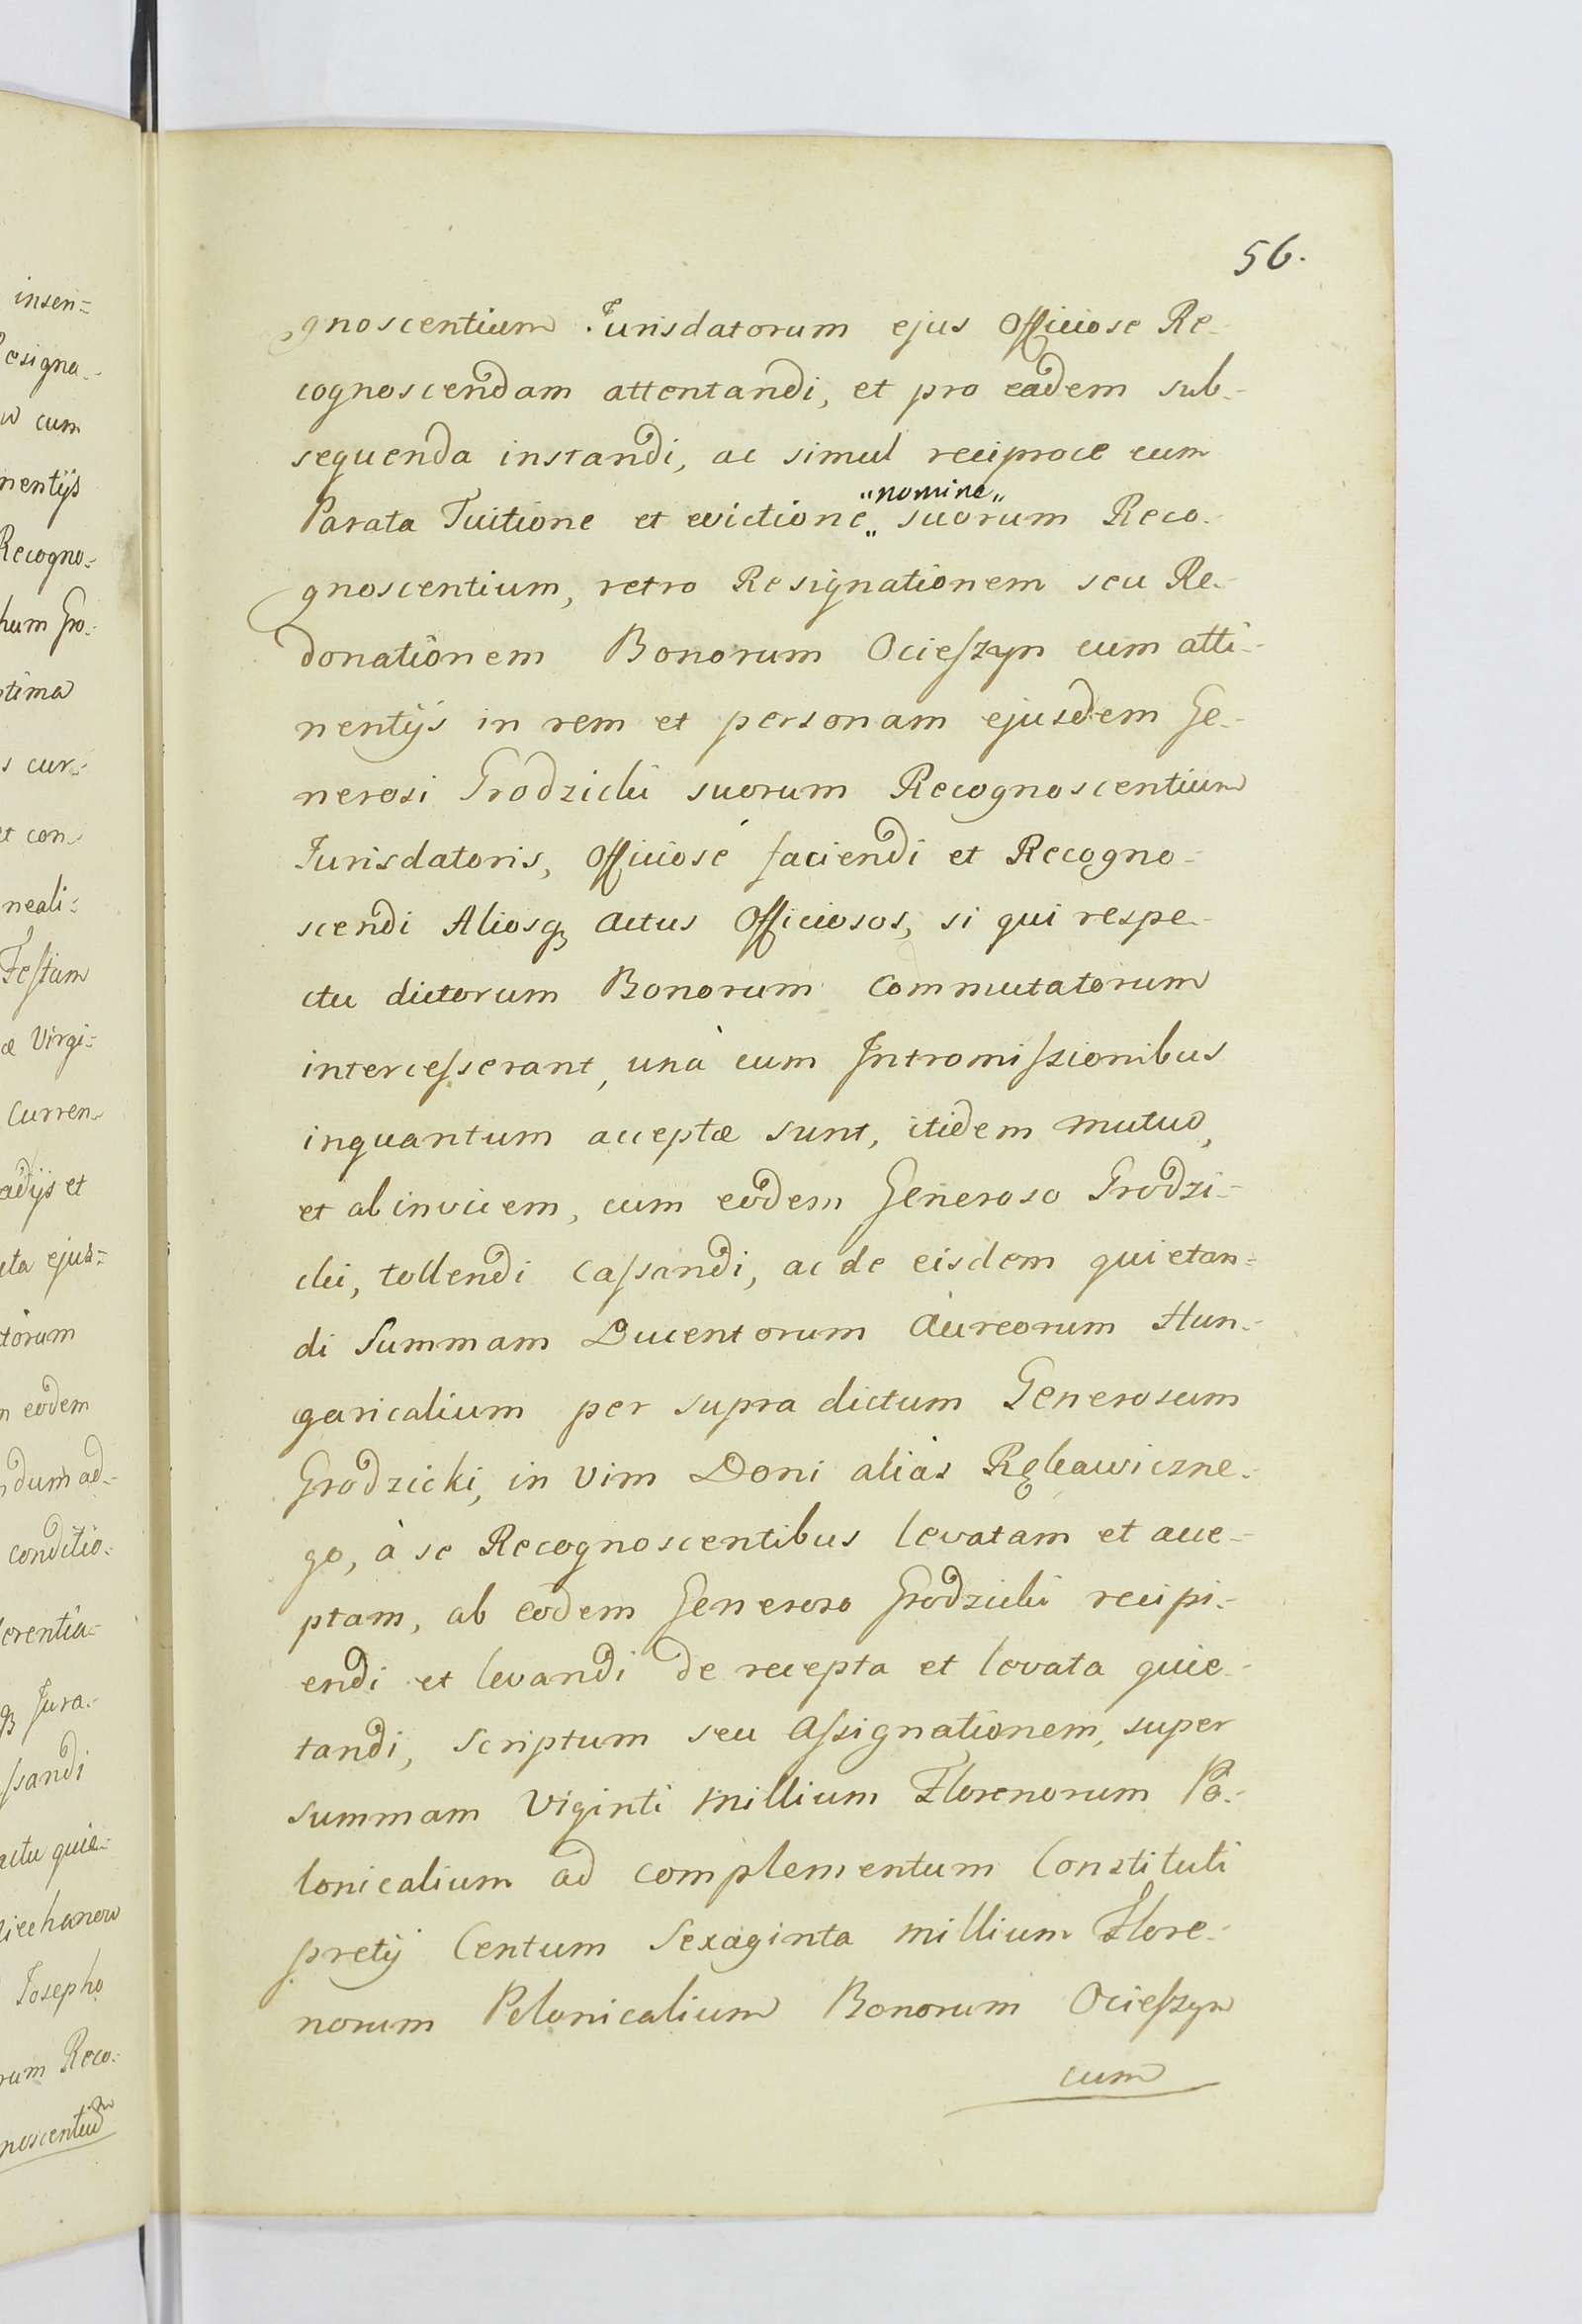 insen=
esigna=
w cum
nentijs
Recogno=
hum Gro=
tima
s cur=
et con=
neali=
Festum
æ Virgi=
Curren=
adijs et
cta ejus=
torum
n eodem
dum ad=
conditio=
erentia=
Jura=
ssandi
actu quie=
iechanow
Josepho
rum Reco=
noscentium
56.
gnoscentium Jurisdatorum ejus Officiose Re=
cognoscendam attentandi, et pro eadem sub=
sequenda instandi, ac simul reciproce cum
"nomine"
Parata Tuitione et evictione" suorum Reco=
gnoscentium, retro Resignationem seu Re=
donationem Bonorum Ocieszyn cum atti=
nentijs in rem et personam ejusdem Ge=
nerosi Grodzicki suorum Recognoscentium
Jurisdatoris, Officiosé faciendi et Recogno=
scendi Aliosq Actus Officiosos, si qui respe=
ctu dictorum Bonorum Commutatorum
intercesserant, unà cum Intromissionibus
inquantum acceptæ sunt, itidem mutuo,
et abinvicem, cum eodem Generoso Grodzi=
cki, tollendi Cassandi, ac de eisdem quietan=
di Summam Ducentorum Aureorum Hun=
garicalium per supra dictum Generosum
Grodzicki, in Vim Doni aliàs Rękawiczne=
go, à se Recognoscentibus levatam et acce=
ptam, ab eodem Generoso Grodzicki recipi=
endi et levandi de recepta et levata quie=
tandi, Scriptum seu Assignationem, super
summam Viginti Millium Florenorum Po=
lonicalium ad Complementum Constituti
pretij Centum Sexaginta Millium Flore=
norum Polonicalium Bonorum Ocieszyn
cum